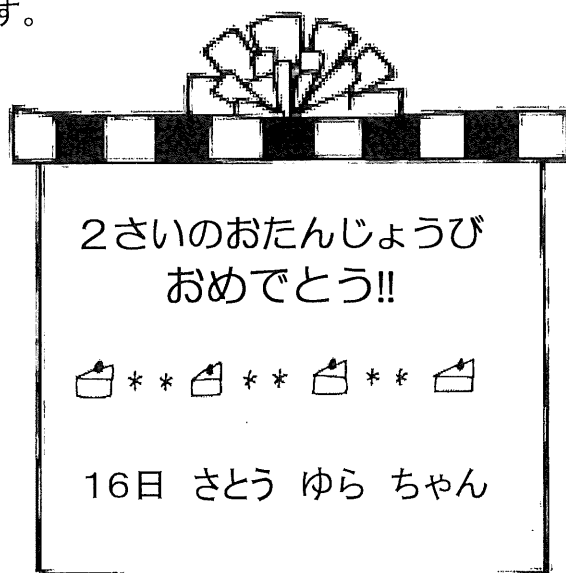 す。
2さいのおたんじょうび
おめでとう!!
**  **  **
16日 さとう ゆら ちゃん